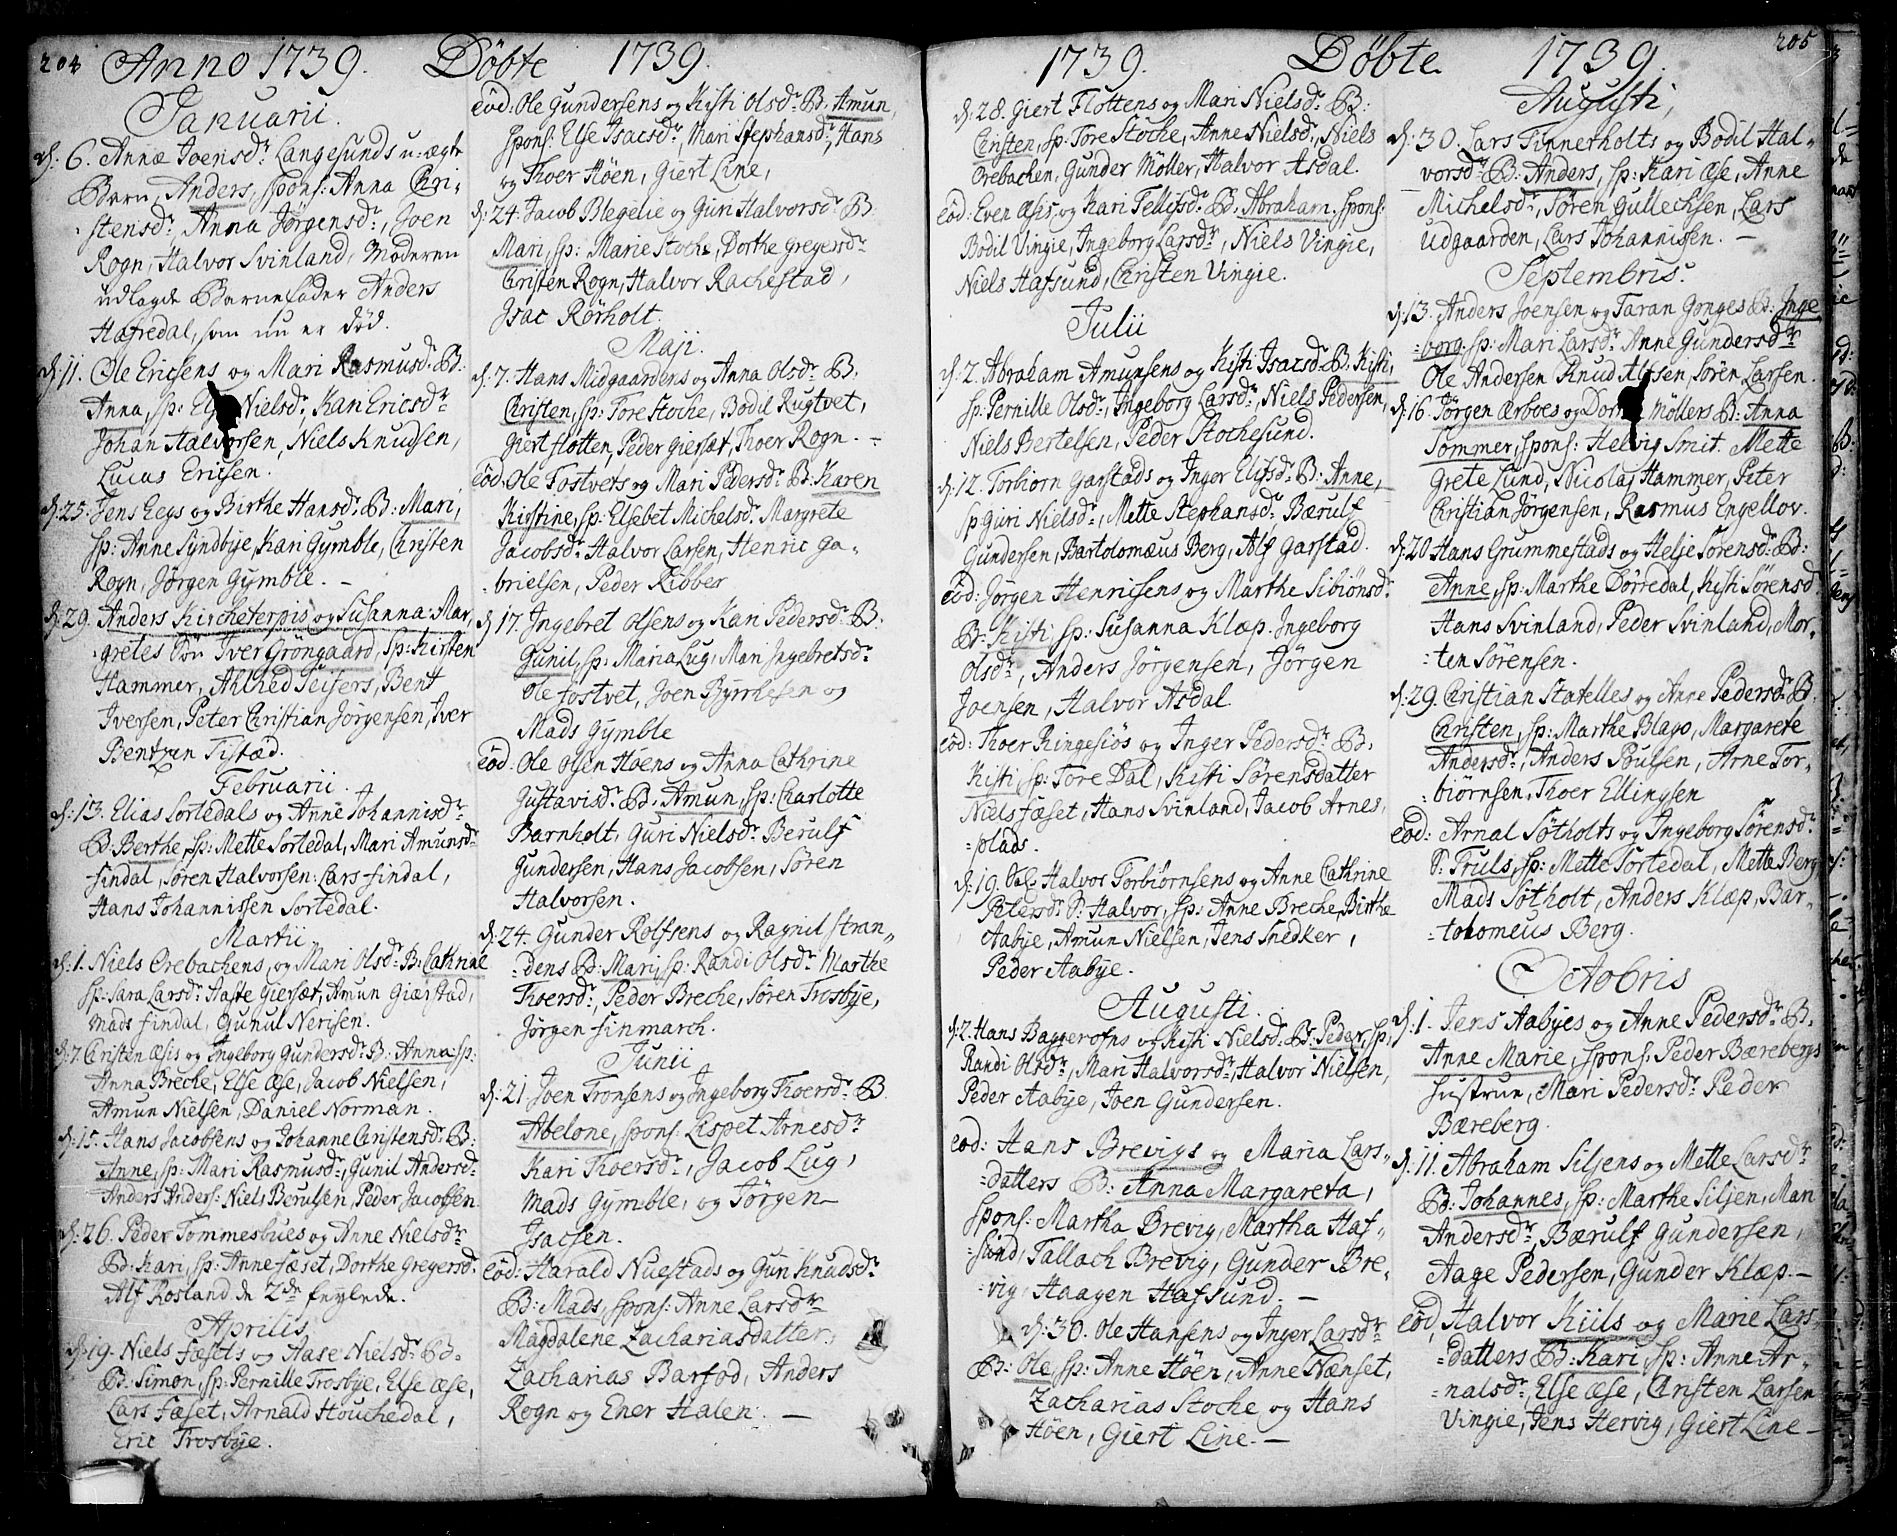 204
Anno 1739. Döbte 1739.
Januarii.
d. 6. Annæ Joensdr Langesunds u-ægte
Barn, Anders, spons: Anna Chri-
stensdr Anna Jörgensdr, Joen
Rogn, Halvor Svinland, Moderen
udlagde Barnefader Anders
Hafredal, som nu er död.
d. 11. Ole Ericsens og Mari Rasmusdr B:
Anna, sp: Else Nielsdr, Kari Ericsdr
Johan Halvorsen, Niels Knudsen,
Lucas Ericsen.
d. 25. Jens Eegs og Birthe Hansdr B: Mari,
sp: Anne Lyndbye, Kari Gymble, Christen
Rogn, Jörgen Gymble. -
d. 29. Anders Kircheterpis og Susanna Mar-
gretes Sön Iver Gröngaard, sp: Kirsten
Hammer, Ahlhed Seifers, Bent
Iversen, Peter Christian Jörgensen, Iver
Bentzen Tistæd.
Februarii.
d. 13. Elias Sortedals og Anne Johannisdr
B: Berthe, sp: Mette Sortedal, Mari Amunsdr
Findal, Sören Halvorsen: Lars Findal,
Hans Johannissen Sortedal.
Martii
d. 1. Niels Orebachens, og Mari Olsdr B: Cathrine
sp: Sara Larsdr Aaste Giersæt, Amun Giærstad,
Mads Findal, Gunul Nerisen.
d. 7. Christen Æsis og Ingeborg Gundersdr B: Anna: sp:
Anna Breche, Else Æse, Jacob Nielsen,
Amun Nielsen, Daniel Norman.
d. 15. Hans Jacobsens og Johanne Christensdr B:
Anne, sp: Mari Rasmusdr, Gunil Andersdr
Anders Anders: Niels Berulsen, Peder Jacobsen.
d. 26. Peder Tommesbues og Anne Nielsdr
B: Kari, sp: Anne Fæset, Dorthe Gregersdr
Alf Rosland de 2de feylede.
Aprilis
d. 19. Niels Fæsets og Aase Nielsdr B.
B: Simon, sp: Pernille Trosbye, Else Æse,
Lars Fæset, Arnald Houchedal,
Eric Trosbye.
eod: Ole Gundersens og Kisti Olsdr B. Amun,
spons: Else Isacsdr, Mari Stephansdr, Hans
og Thoer Höen, Giert Line,
d. 24. Jacob Blegelie og Guri Halvorsdr B
Mari, sp: Marie Stoche, Dorthe Gregersdr
Christen Rogn, Halvor Rachestad,
Isac Rörholt.
Maji.
d. 7. Hans Midgaardens og Anna Olsdr B.
Christen, sp: Tore Stoche, Bodil Rugtvet,
Giert Flotten, Peder Giersæt, Thoer Rogn. -
eod: Ole Tostvets og Mari Pedersdr B: Karen
Kirstine, sp: Elsebet Michelsdr. Margrete
Jacobsdr. Halvor Larsen, Henric Ga-
brielsen, Peder Ribber
d. 17. Ingebret Olsens og Kari Pedersdr B.
Gunil, sp: Maria Lug, Mari Ingebretsdr
Ole Tostvet, Joen Byrrhesen og
Mads Gymble
eod: Ole Olsen Höens og Anna Cathrine
Gustavisdr B: Amun, sp: Charlotte
Barnholt, Guri Nielsdr Berulf
Gundersen, Hans Jacobsen, Sören
Halvorsen.
d. 24. Gunder Rolfsens og Ragnil Stran-
dens B: Mari, sp: Randi Olsdr Marthe
Thoersdr, Peder Breche, Sören Trosbye,
Jörgen Finmarch.
Junii
d. 21 Joen Tronsens og Ingeborg Thoersdr B
Abelone, spons: Lispet Arnesdr
Kari Thoersdr, Jacob Lug,
Mads Gymble, og Jörgen
Isacsen.
eod: Harald Nuestads og Guri Knudsdr
B: Mads, spons: Anne Larsdr
Magdalene Zachariasdatter,
Zacharias Barfod, Anders
Rogn og Ener Halen. -
1739. Döbte 1739. 205
d. 28. Giert Flottens og Mari Nielsdr B:
Christen, sp: Tore Stoche, Anne Nielsdr, Niels
Orebachen, Gunder Möller, Halvor Asdal.
eod: Even Æsis, og Kari Tellefsdr B. Abraham. spons:
Bodil Vingie, Ingeborg Larsdr, Niels Vingie,
Niels Hafsund, Christen Vingie.
Julii
d. 2. Abraham Amunsens og Kisti Isacsdr B: Kisti,
sp: Pernille Olsdr, Ingeborg Larsdr, Niels Pedersen,
Niels Bertelsen, Peder Stochesund.
d. 12. Torbiorn Garstads og Inger Elifsdr B: Anne,
sp: Guri Nielsdr, Mette Stephansdr. Bærulf
Gundersen, Bartolomæus Berg, Alf Garstad.
eod: Jörgen Henricsens og Marthe Sibiönsdr
B: Kisti sp: Susanna Klæp. Ingeborg
Olsdr, Anders Jörgensen, Jörgen
Joensen, Halvor Asdal
eod: Thoer Ringesiös og Inger Pedersdr B.
Kisti, sp: Tore Dal, Kisti Sörensdatter
Niels Fæset, Hans Svinland, Jacob Arnes,
plads.
d. 19. Halvor Torbiörnsens og Anne Cathrine
Petersdr S: Halvor, sp: Anne Breche, Birthe
Aabye, Amun Nielsen, Jens Snedker,
Peder Aabye.
Augusti.
d. 2. Hans Baggerofns og Kisti Nielsd. B: Peder, sp:
Randi Olsdr, Mari Halvorsdr, Halvor Nielsen,
Peder Aabye, Joen Gundersen.
eod: Hans Brevigs og Maria Lars-
datters B: Anna Margareta,
spons: Martha Brevig, Martha Haf-
sund, Tallach Brevig, Gunder Bre-
vig, Haagen Hafsund. -
d. 30. Ole Hansens og Inger Larsdr
B: Ole, sp: Anne Höen, Anne Nænset,
Zacharias Stoche og Hans
Höen, Giert Line. -
Augusti,
d. 30. Lars Finnerholts og Bodil Hal-
vorsdr B: Anders, sp: Kari Æse, Anne
Michelsdr, Sören Gullechsen, Lars
Udgaarden, Lars Johannissen. -
Septembris.
d. 13. Anders Joensen og Taran Gonges B: Inge
borg, sp: Mari Larsdr. Anne Gundersdr
Ole Andersen Knud Alfsen, Sören Larsen.
d. 16. Jörgen Ærboes og Dorthe Möllers B: Anna
Sommer, spons: Helvig Smit. Mette
Grete Lund, Nicolaj Hammer, Peter
Christian Jörgensen, Rasmus Engellov.
d. 20 Hans Grummestads og Helje Sörensdr B:
Anne, sp: Marthe Dörredal, Kisti Sörensd
Hans Svinland, Peder Svinland, Mor-
ten Sörensen.
d. 29. Christian Statelles og Anne Pedersdr B
Christen, sp: Marthe Blago, Margarete
Andersdr, Anders Poulsen, Arne Tor-
biörnsen, Thoer Ellingsen
eod: Arnal Sötholts og Ingeborg Sörensdr.
S: Truls, sp: Mette Sortedal, Mette Berg
Mads Sötholt, Anders Klæp, Bar-
tolomeus Berg.
Octobris
d. 1. Jens Aabyes og Anne Pedersdr B.
Anne Marie, spons. Peder Bærebergs
Hustrue, Mari Pedersdr. Peder
Bæreberg.
d. 11. Abraham Siljens og Mette Larsdr
B: Johannes, sp: Marthe Siljen, Mari
Andersdr, Bærulf Gundersen,
Aage Pedersen, Gunder Klæp. -
eod, Halvor Kiils og Marie Lars
datters B: Kari, sp: Anne Ar-
nalsdr, Else Æse, Christen Larsen
Vingie, Jens Hervig, Giert Line -